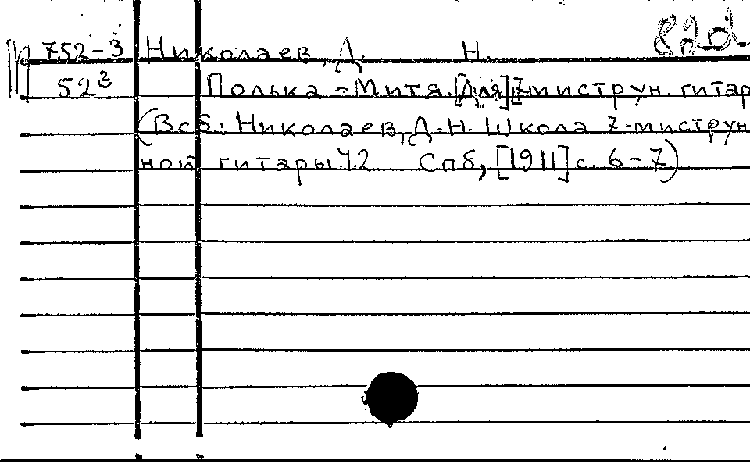 752-3 Николаев, Д. Н.
52² Полька-Митя. [Для] 7-миструн. гитар
(В сб: Николаев, Д. Н. Школа 7-миструн
ной гитары Ч. 2 Спб, [1911] с. 6-7)